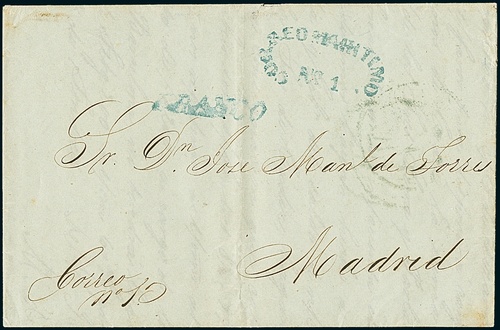 CORREO MARITIMO
Nº 1
FRANCO
Sr. Dn. Jose Manl. de Torres
Madrid
Correo
no 1º